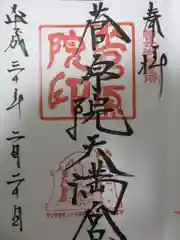 奉拝
菅原院天満宮
平成三十年二月二十日
菅原
院印